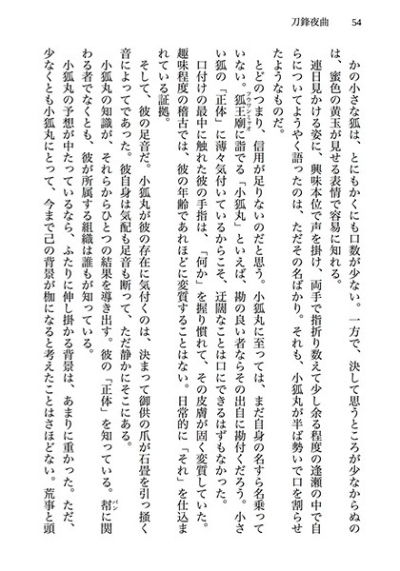 刀鋒夜曲
54
かの小さな狐は、とにもかくにも口数が少ない。一方で、決して思うところが少なからぬの
は、蜜色の黄玉が見せる表情で容易に知れる。
連日見かける姿に、興味本位で声を掛け、両手で指折り数えて少し余る程度の逢瀬の中で自
らについてようやく語ったのは、ただその名ばかり。それも、小狐丸が半ば勢いで口を割らせ
たようなものだ。
とどのつまり、信用が足りないのだと思う。小狐丸に至っては、まだ自身の名すら名乗って
いない。狐王廟に詣でる「小狐丸」といえば、勘の良い者ならその出自に勘付くだろう。小さ
い狐の「正体」に薄々気付いているからこそ、迂闊なことは口にできるはずもなかった。
口付けの最中に触れた彼の手指は、「何か」を握り慣れて、その皮膚が固く変質していた。
趣味程度の稽古では、彼の年齢であれほどに変質することはない。日常的に「それ」を仕込ま
れている証拠。
そして、彼の足音だ。小狐丸が彼の存在に気付くのは、決まって御供の爪が石畳を引っ掻く
音によってであった。彼自身は気配も足音も断って、ただ静かにそこにある。
小狐丸の知識が、それらからひとつの結果を導き出す。彼の「正体」を知っている。幇に関
わる者でなくとも、彼が所属する組織は誰もが知っている。
小狐丸の予想が中たっているなら、ふたりに伸し掛かる背景は、あまりに重かった。ただ、
少なくとも小狐丸にとって、今まで己の背景が枷になると考えたことはさほどない。荒事と頭